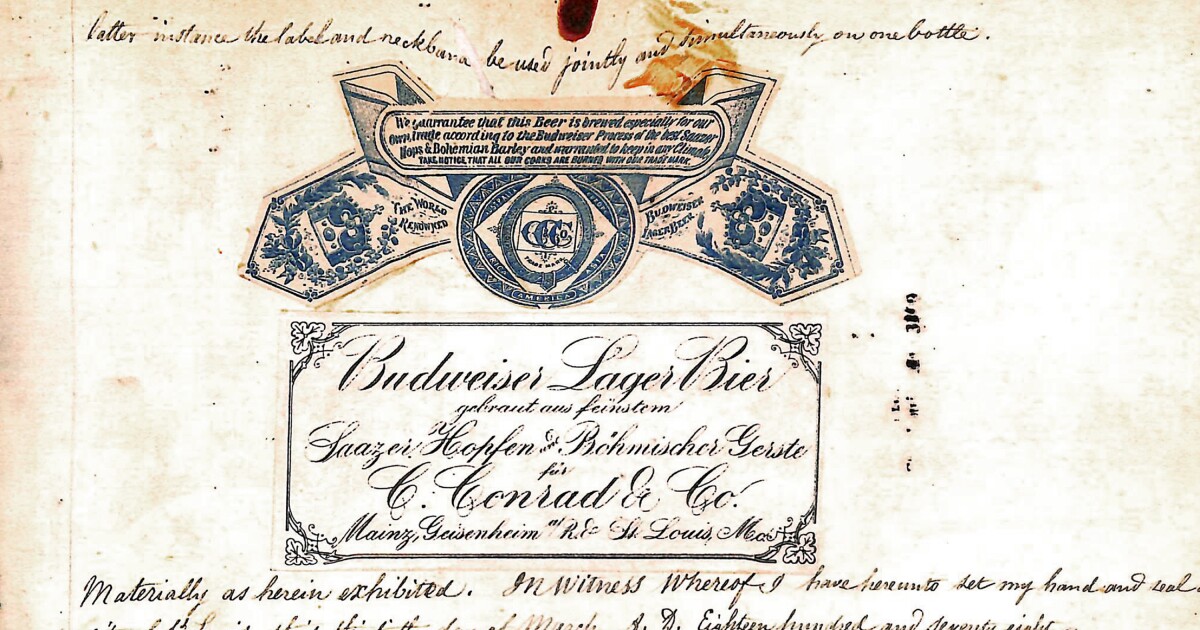 latter instance the label and neckband be used jointly and simultaneously on one bottle.
We guarrantee that this Beer is brewed especially for our
own trade according to the Budweiser Process of the best Saazer
Hops & Bohemian Barley and warranted to keep in any Climate
TAKE NOTICE THAT ALL OUR CORKS ARE BURNED WITH OUR TRADE MARK.
THE WORLD
RENOWNED
CCCo.
TRADE MARK
AMERICA
ASIA
BUDWEISER
LAGER BEER
Budweiser Lager Bier
gebraut aus feinstem
Saazer Hopfen und Böhmischer Gerste
für
C. Conrad & Co.
Mainz, Geisenheim a/R. & St. Louis, Mo.
Materially as herein exhibited. In Witness Whereof I have hereunto set my hand and seal
day of March A. D. Eighteen hundred and seventy eight